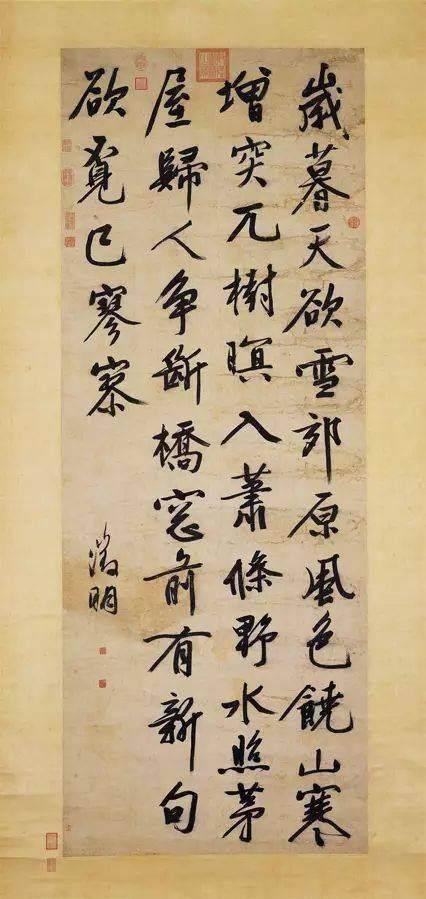 歲暮天欲雪郊原風色饒山寒
增突兀樹暝入蕭條野水照茅
屋歸人爭斷橋窓前有新句
欲覓已寥
徵明